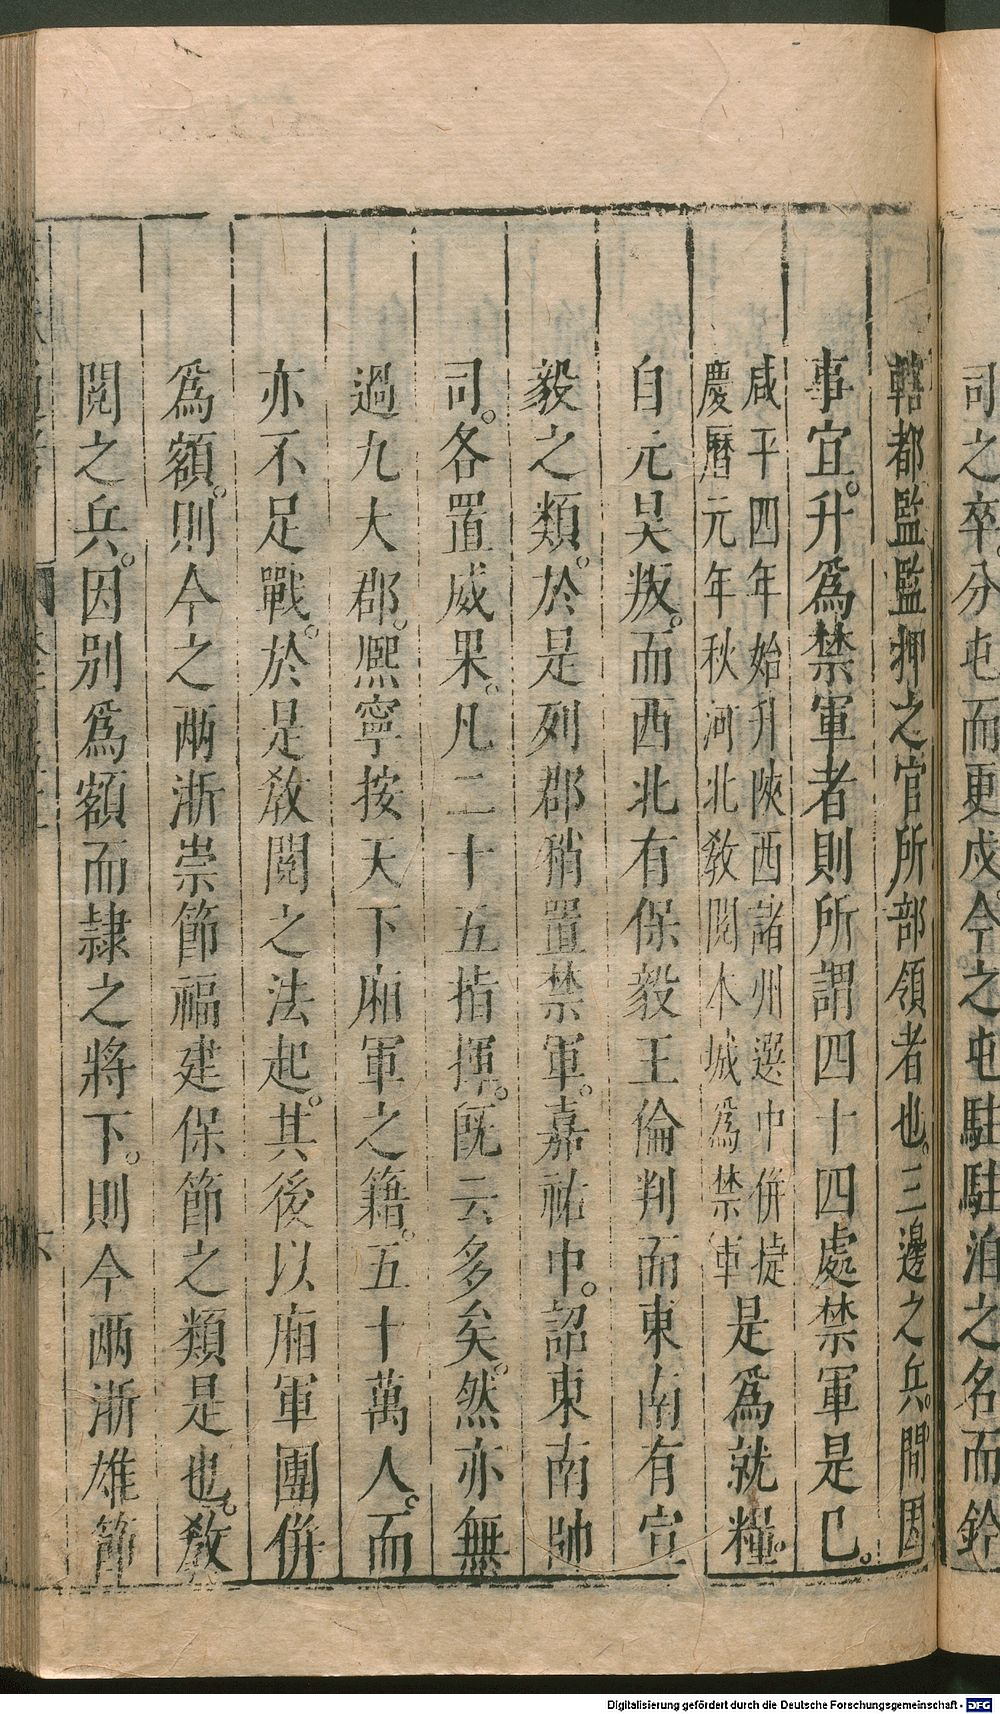 司之卒。分屯而更戍。今之屯駐駐泊之名而鈴
轄都監監押之官所部領者也。三邊之兵。間因
事宜。升爲禁軍者則所謂四十四處禁軍是已。
咸平四年始升陝西諸州選中併揵
慶曆元年秋河北教閱本城爲禁車是爲就糧。
自元昊叛。而西北有保毅王倫判而東南有宣
毅之類。於是列郡稍置禁軍。嘉祐中。詔東南帥
司。各置威果。凡二十五指揮。旣云多矣。然亦無
過九大郡。熈寧按天下廂軍之籍。五十萬人。而
亦不足戰。於是教閱之法起。其後以廂軍團併
爲額。則今之兩浙崇節福建保節之類是也。教
閱之兵。因別爲額而隷之將下。則今兩浙雄節
六
Digitalisierung gefördert durch die Deutsche Forschungsgemeinschaft - DFG